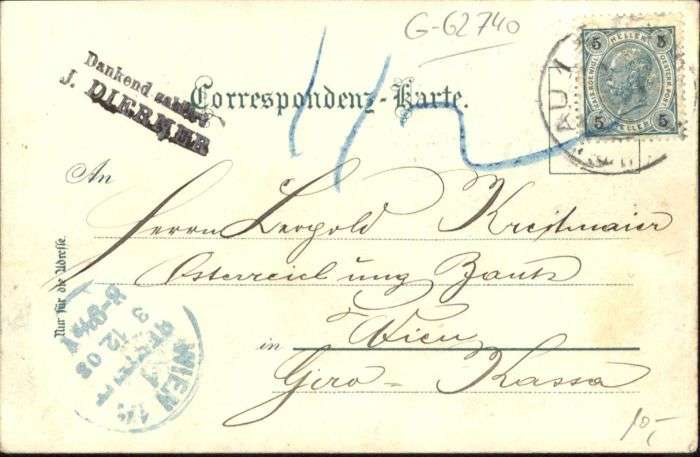 G-62740
Dankend
J. DIERMER
Correspondenz-Karte.
5 HELLER 5
5 HELLER 5
An
Herrn Leopold Kreitmaier
Österreich ung Bank
in Wien
Giro - Kassa
Nur für die Adresse.
WIEN 1/1
3 12 03
8-9½V
10,-